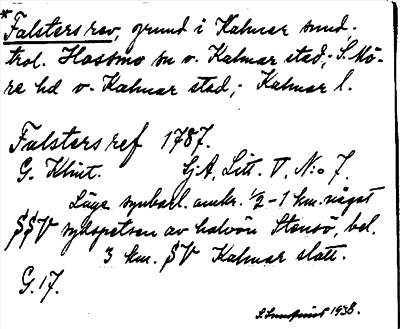 *Falsters rev, grund i Kalmar sund,
trol. Hossmo sn v. Kalmar stad; S. Mö-
re hd v. Kalmar stad; Kalmar l.
Falsters ref 1787.
G. Klint. SjA, Litt. V, N:o 7.
Läge synbarl. omkr. ½-1 km. något
SSV sydspetsen av halvön Stensö, bel.
3 km. SV Kalmar slott.
G.17.
1938.